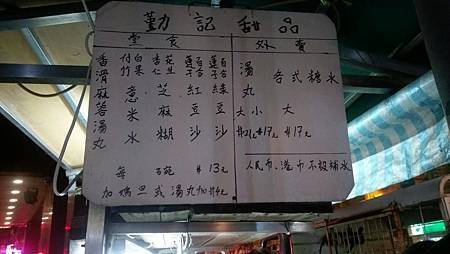 勤記甜品
堂食
外賣
香滑麻蓉湯丸
付竹白果意米水
杏仁花生芝麻糊
蓮子百合紅豆沙
蓮子百合綠豆沙
每碗 $13元
加鸡旦或湯丸加$4元
湯丸
大小
$21元 $17元
各式糖水
大
$17元
人民币、港币不設補水